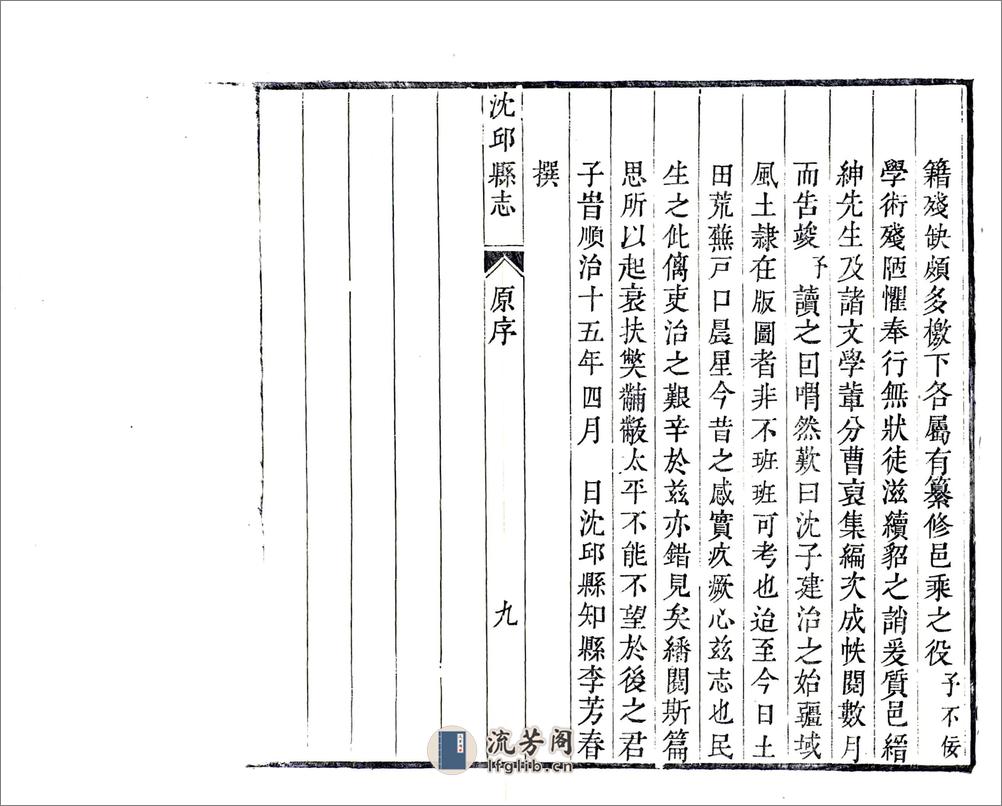 籍殘缺頗多檄下各屬有纂修邑乘之役予不佞
學術殘陋懼奉行無狀徒滋續貂之誚爰質邑縉
紳先生及諸文學輩分曹裒集編次成帙閱數月
而告竣予讀之回喟然歎曰沈子建治之始疆域
風土隷在版圖者非不班班可考也迨至今日土
田荒蕪戸口晨星今昔之感實疚厥心兹志也民
生之仳𠌯吏治之艱辛於兹亦錯見矣繙閱斯篇
思所以起衰扶獘黼黻太平不能不望於後之君
子旹順治十五年四月 日沈邱縣知縣李芳春
撰
沈邱縣志 原序 九
流芳阁
lfglib.cn